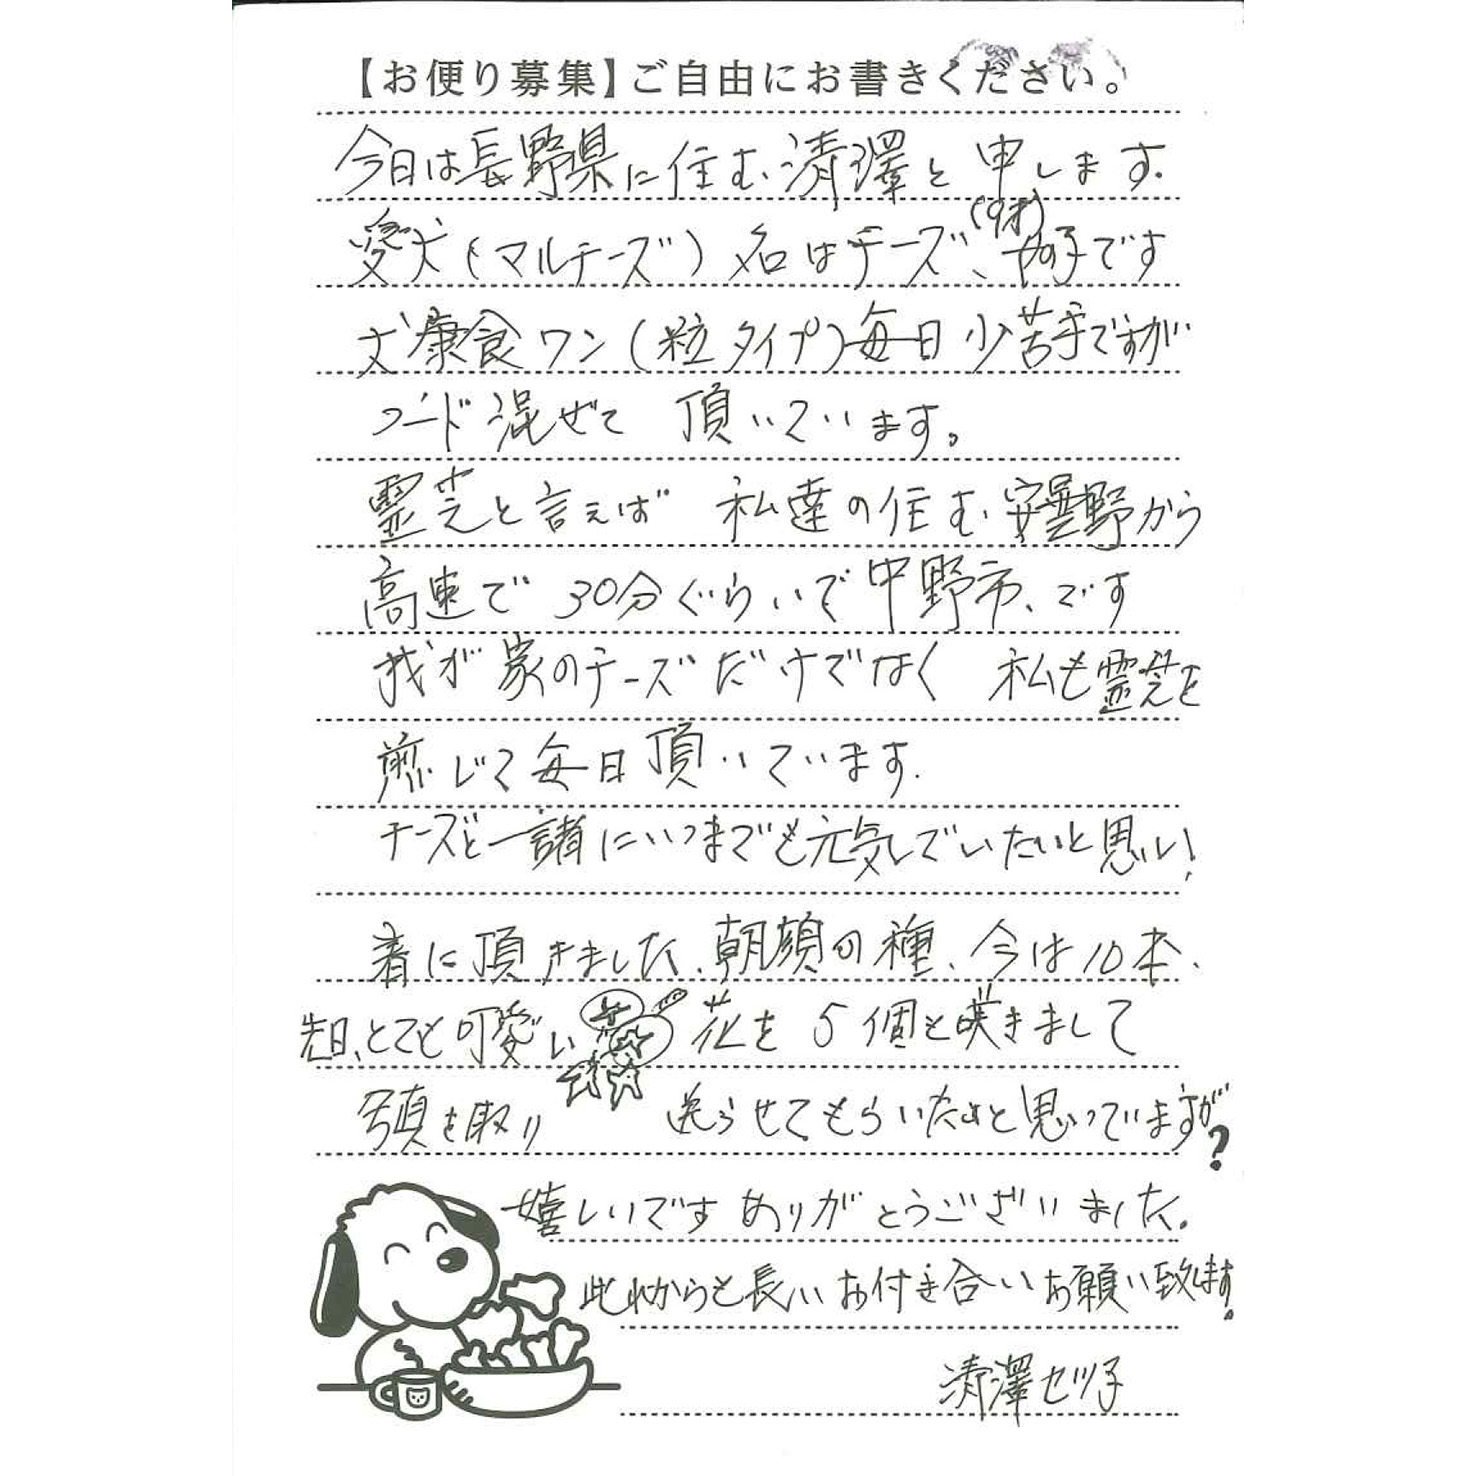 【お便り募集】ご自由にお書きください。
今日は長野県に住む、清澤と申します。
愛犬(マルチーズ)名はチーズ、(9才)女の子です
犬康食ワン(粒タイプ)毎日少苦手ですが
フード混ぜて頂いています。
霊芝と言えば 私達の住む安曇野から
高速で30分ぐらいで中野市、です
我が家のチーズだけでなく 私も霊芝を
煎じて毎日頂いています。
チーズと一諸にいつまでも元気でいたいと思い!
着に頂きました、朝顔の種、今は10本、
先日、とても可愛い 花を5個も咲きまして
写真を取り 送らせてもらいたいと思っていますが?
嬉しいです ありがとうございました。
此れからも長いお付き合いお願い致します。
清澤セツ子